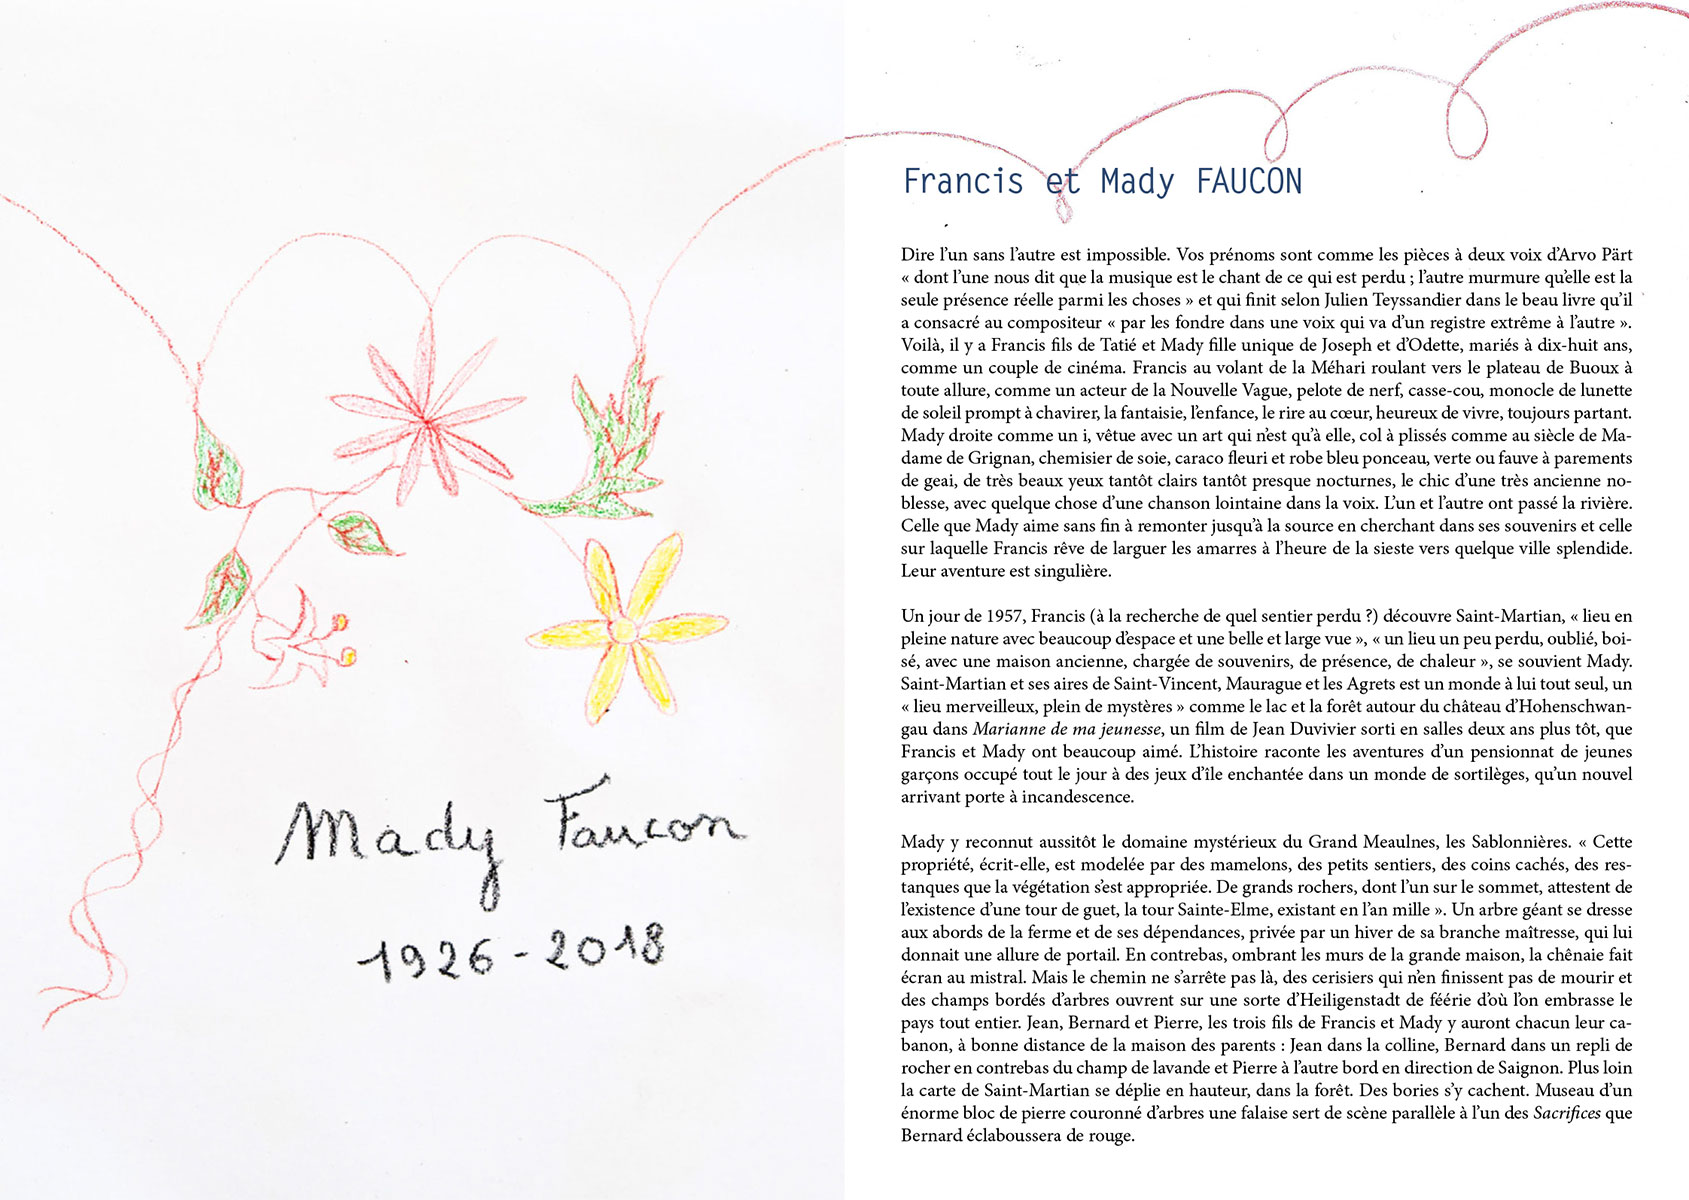 Mady Faucon
1926-2018
Francis et Mady FAUCON
Dire l'un sans l'autre est impossible. Vos prénoms sont comme les pièces à deux voix d'Arvo Pärt
« dont l'une nous dit que la musique est le chant de ce qui est perdu ; l'autre murmure qu'elle est la
seule présence réelle parmi les choses » et qui finit selon Julien Teyssandier dans le beau livre qu'il
a consacré au compositeur « par les fondre dans une voix qui va d'un registre extrême à l'autre ».
Voilà, il y a Francis fils de Tatié et Mady fille unique de Joseph et d'Odette, mariés à dix-huit ans,
comme un couple de cinéma. Francis au volant de la Méhari roulant vers le plateau de Buoux à
toute allure, comme un acteur de la Nouvelle Vague, pelote de nerf, casse-cou, monocle de lunette
de soleil prompt à chavirer, la fantaisie, l'enfance, le rire au cœur, heureux de vivre, toujours partant.
Mady droite comme un i, vêtue avec un art qui n'est qu'à elle, col à plissés comme au siècle de Ma-
dame de Grignan, chemisier de soie, caraco fleuri et robe bleu ponceau, verte ou fauve à parements
de geai, de très beaux yeux tantôt clairs tantôt presque nocturnes, le chic d'une très ancienne no-
blesse, avec quelque chose d'une chanson lointaine dans la voix. L'un et l'autre ont passé la rivière.
Celle que Mady aime sans fin à remonter jusqu'à la source en cherchant dans ses souvenirs et celle
sur laquelle Francis rêve de larguer les amarres à l'heure de la sieste vers quelque ville splendide.
Leur aventure est singulière.
Un jour de 1957, Francis (à la recherche de quel sentier perdu ?) découvre Saint-Martian, « lieu en
pleine nature avec beaucoup d'espace et une belle et large vue », « un lieu un peu perdu, oublié, boi-
sé, avec une maison ancienne, chargée de souvenirs, de présence, de chaleur », se souvient Mady.
Saint-Martian et ses aires de Saint-Vincent, Maurague et les Agrets est un monde à lui tout seul, un
« lieu merveilleux, plein de mystères » comme le lac et la forêt autour du château d'Hohenschwan-
gau dans Marianne de ma jeunesse, un film de Jean Duvivier sorti en salles deux ans plus tôt, que
Francis et Mady ont beaucoup aimé. L'histoire raconte les aventures d'un pensionnat de jeunes
garçons occupé tout le jour à des jeux d'île enchantée dans un monde de sortilèges, qu'un nouvel
arrivant porte à incandescence.
Mady y reconnut aussitôt le domaine mystérieux du Grand Meaulnes, les Sablonnières. « Cette
propriété, écrit-elle, est modelée par des mamelons, des petits sentiers, des coins cachés, des res-
tanques que la végétation s'est appropriée. De grands rochers, dont l'un sur le sommet, attestent de
l'existence d'une tour de guet, la tour Sainte-Elme, existant en l'an mille ». Un arbre géant se dresse
aux abords de la ferme et de ses dépendances, privée par un hiver de sa branche maîtresse, qui lui
donnait une allure de portail. En contrebas, ombrant les murs de la grande maison, la chênaie fait
écran au mistral. Mais le chemin ne s'arrête pas là, des cerisiers qui n'en finissent pas de mourir et
des champs bordés d'arbres ouvrent sur une sorte d'Heiligenstadt de féérie d'où l'on embrasse le
pays tout entier. Jean, Bernard et Pierre, les trois fils de Francis et Mady y auront chacun leur ca-
banon, à bonne distance de la maison des parents : Jean dans la colline, Bernard dans un repli de
rocher en contrebas du champ de lavande et Pierre à l'autre bord en direction de Saignon. Plus loin
la carte de Saint-Martian se déplie en hauteur, dans la forêt. Des bories s'y cachent. Museau d'un
énorme bloc de pierre couronné d'arbres une falaise sert de scène parallèle à l'un des Sacrifices que
Bernard éclaboussera de rouge.